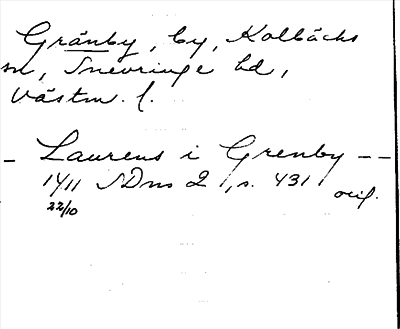 Gränby, by, Kolbäcks
sn, Snevringe hd,
Västm. l.
- Laurens i Grenby --
1411 SDns 2, s. 431
22/10 orig.